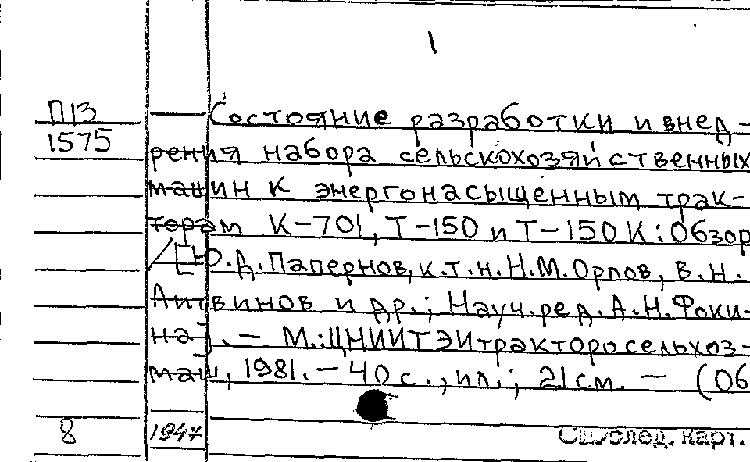 1
П13 Состояние разработки и внед-
1575 рения набора сельскохозяйственных
машин к энергонасыщенным трак-
торам К-701, Т-150 и Т-150К: Обзор
/[Ю.Д. Папернов, к.т.н. Н.М. Орлов, В.Н.
Литвинов и др.; Науч. ред. А.Н. Фоки-
на]. — М.: ЦНИИТЭИтракторосельхоз-
маш, 1981. — 40 с., ил.; 21 см. — (Об
8 1947 См. след. карт.